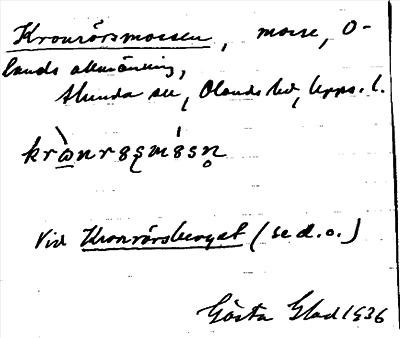 Kronrörsmossen, mosse, O-
lands allmänning,
Alunda sn, Olands hd, Upps. l.
krò̱nrɞʂmɞ́sn̥
Vid Kronrörsberget (se d.o.)
Gösta Glad 1936